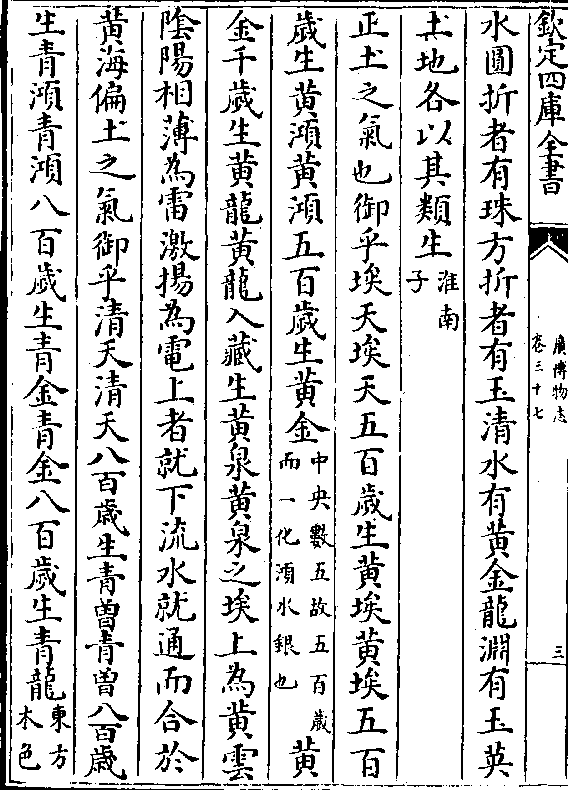 欽定四庫全書
廣博物志
卷三十七
三
水圓折者有珠方折者有玉清水有黃金龍淵有玉英
土地各以其類生淮南子
正土之氣也御乎埃天埃天五百歲生黃埃黃埃五百
歲生黃澒黃澒五百歲生黃金中央數五故五百歲而一化澒水銀也黃
金千歲生黃龍黃龍入藏生黃泉黃泉之埃上為黃雲
陰陽相薄為雷激揚為電上者就下流水就通而合於
黃海偏土之氣御乎清天清天八百歲生青曾青曾八百歲
生青澒青澒八百歲生青金青金八百歲生青龍東方木色